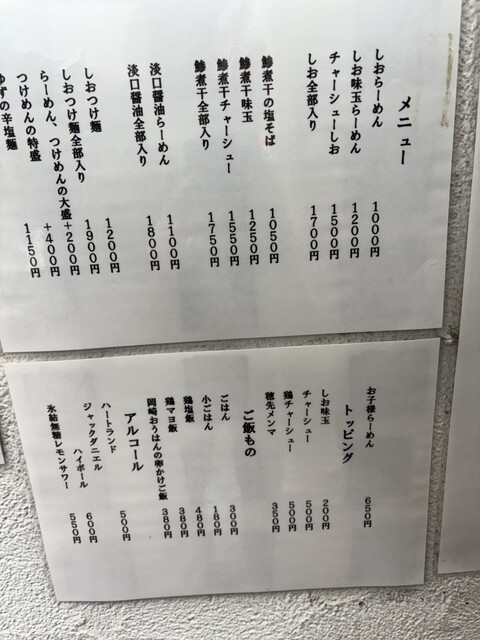 メニュー
しおらーめん 1000円
しお味玉らーめん 1200円
チャーシューしお 1500円
しお全部入り 1700円
鯵煮干の塩そば 1050円
鯵煮干味玉 1250円
鯵煮干チャーシュー 1550円
鯵煮干全部入り 1750円
淡口醤油らーめん 1100円
淡口醤油全部入り 1800円
しおつけ麺 1200円
しおつけ麺全部入り 1900円
らーめん、つけめんの大盛 +200円
つけめんの特盛 +400円
ゆずの辛塩麺 1150円
お子様らーめん 650円
トッピング
しお味玉 200円
チャーシュー 500円
鶏チャーシュー 500円
穂先メンマ 350円
ご飯もの
ごはん 300円
小ごはん 180円
鶏塩飯 480円
鶏マヨ飯 380円
岡崎おうはんの卵かけご飯 380円
アルコール
ハートランド 500円
ジャックダニエル
ハイボール 600円
氷結無糖レモンサワー 550円